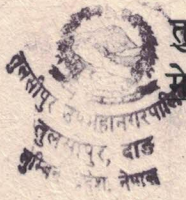 तुलसीपुर उपमहानगरपालिका
तुलसीपुर, दाङ
लुम्बिनी प्रदेश, नेपाल